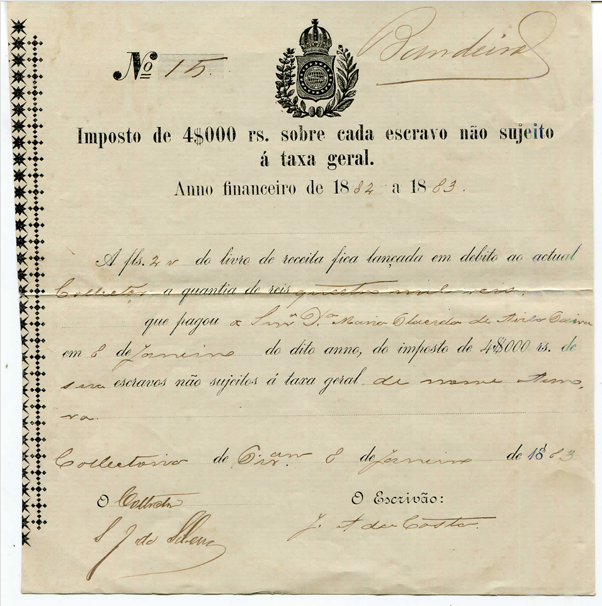 Nº 15. Bandeira
Imposto de 4$000 rs. sobre cada escravo não sujeito
á taxa geral.
Anno financeiro de 1882 a 1883.
A fls. 2 v do livro de receita fica lançada em debito ao actual
Collector a quantia de reis quatro mil reis.
que pagou a Snrª D.ª Maria de
em 8 de Janeiro do dito anno, do imposto de 4$000 rs. de
seu escravos não sujeitos á taxa geral de nome
Collectoria de 8 de Janeiro de 1883
O Collector O Escrivão:
S J da Silva J. A da Costa.